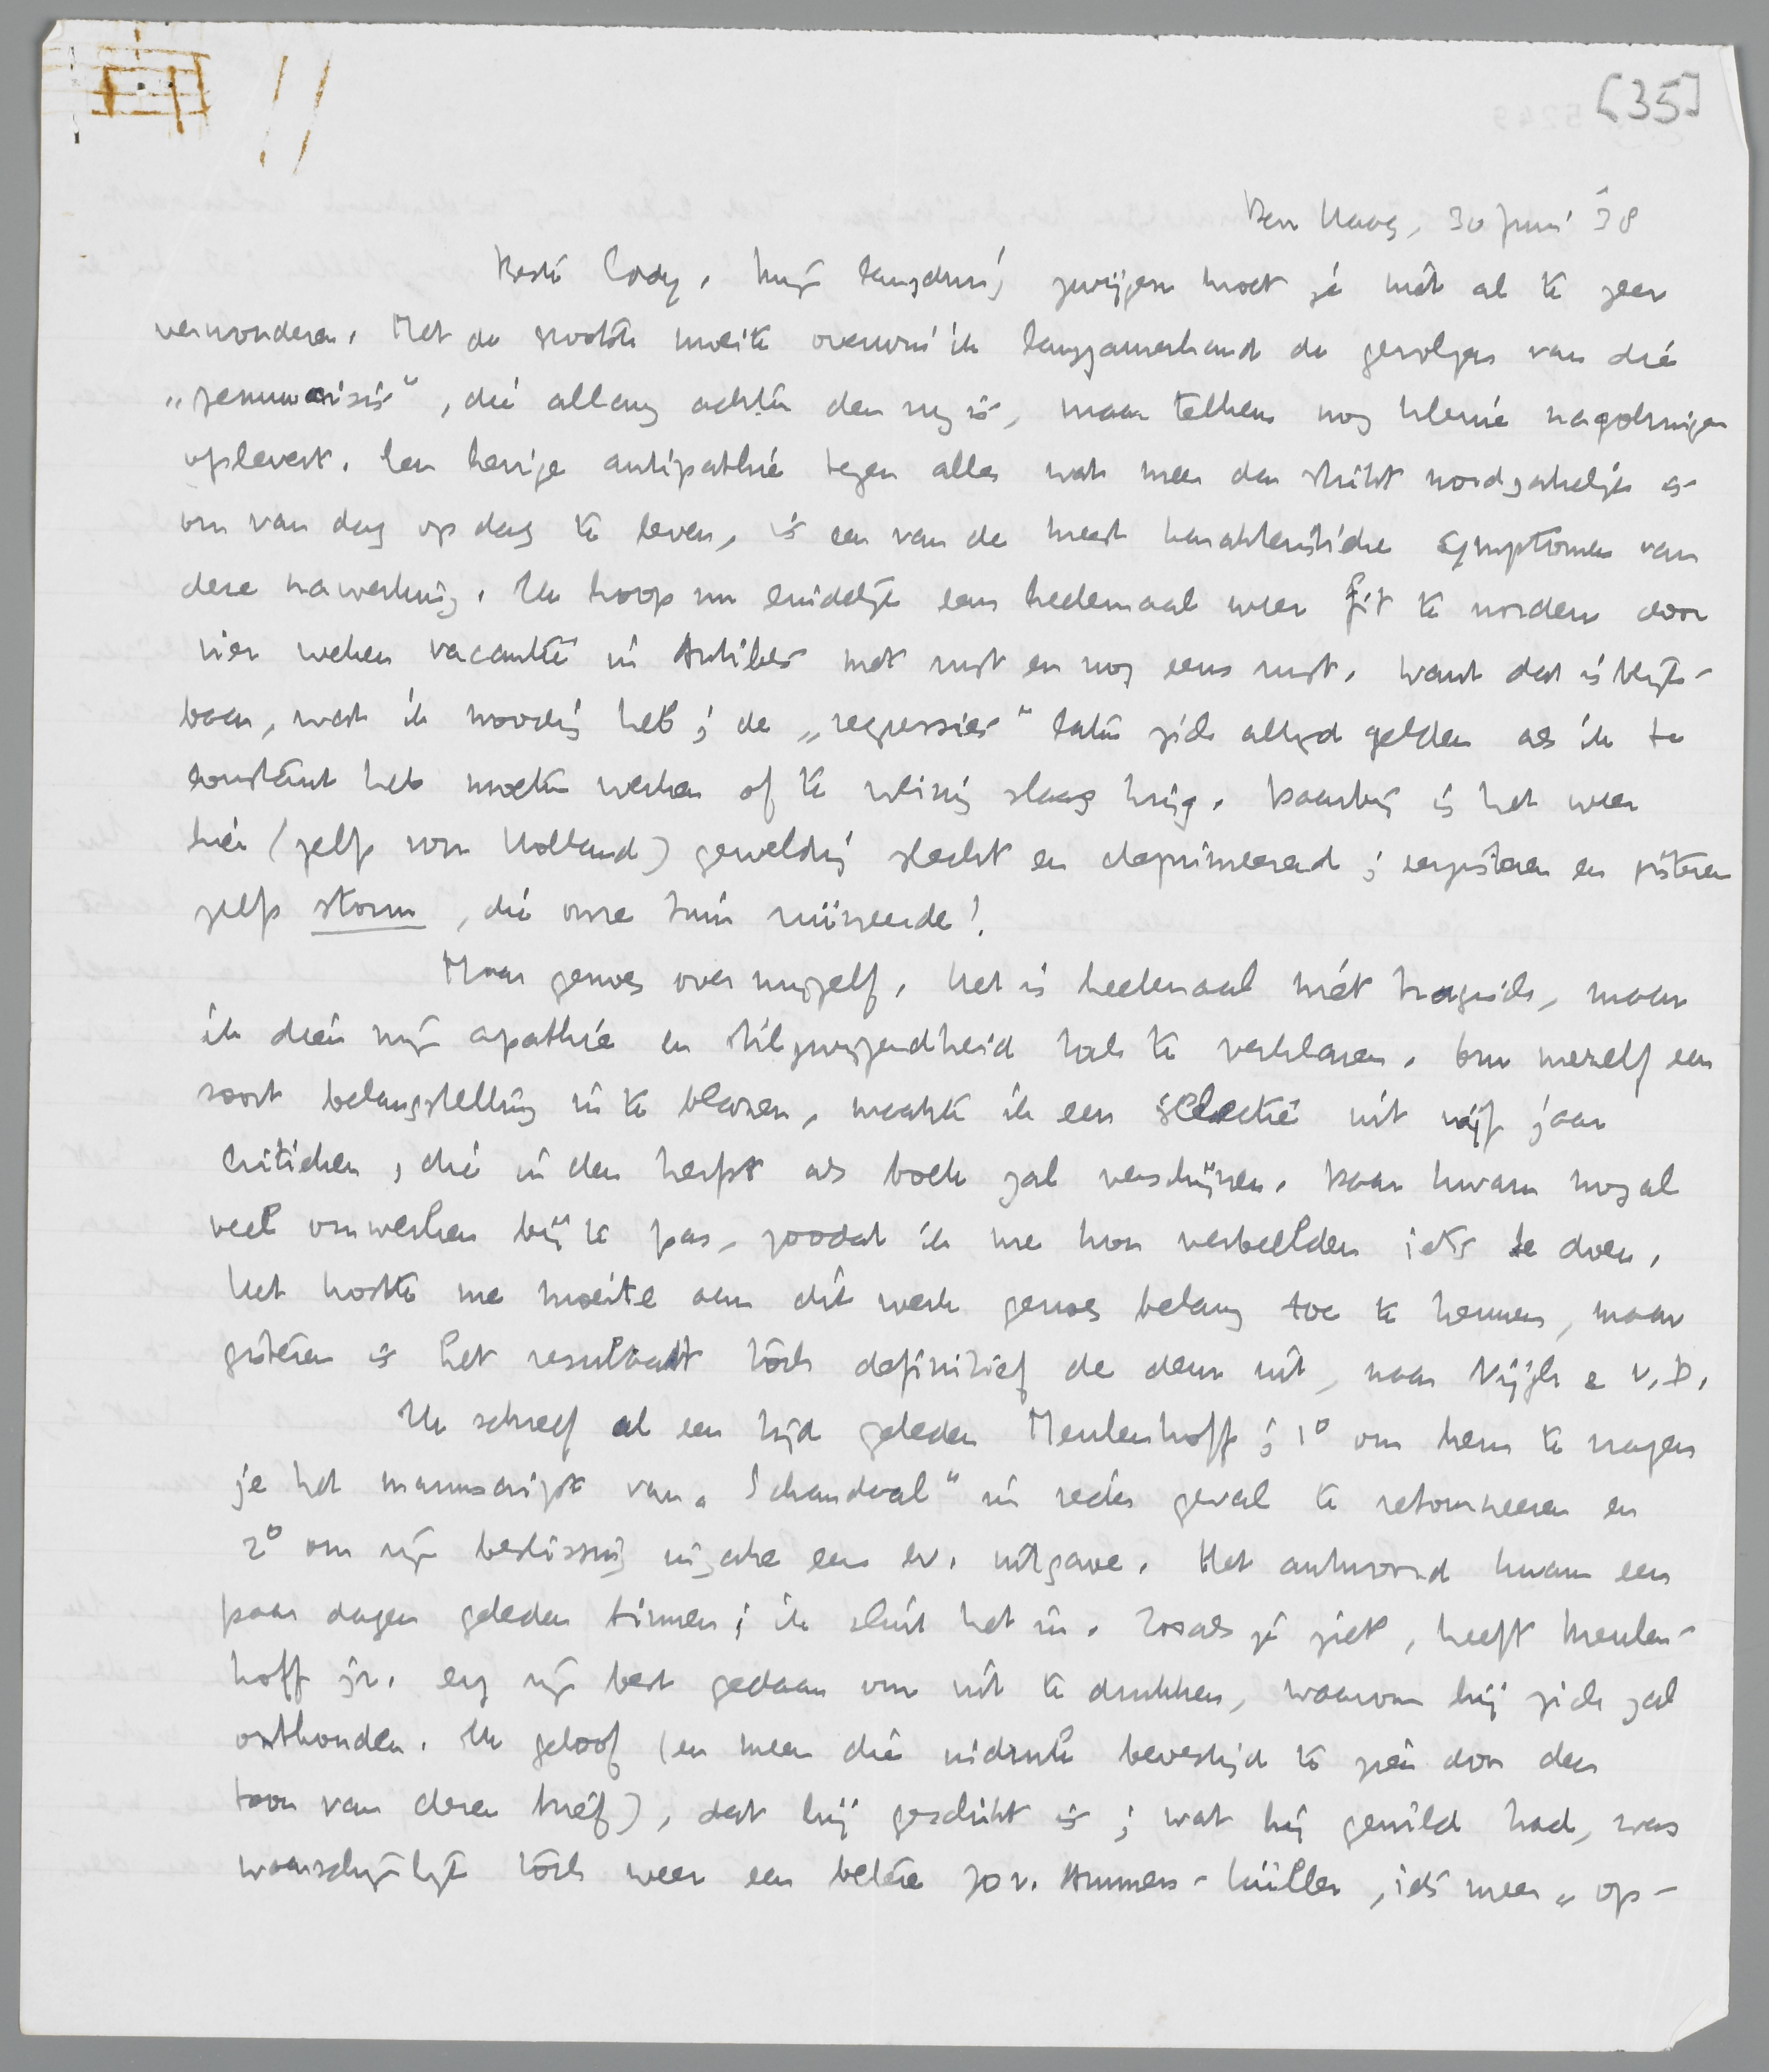 [35]
Den Haag, 30 Juni '38
Beste Cody, Mijn langdurig zwijgen moet je niet al te zeer
verwonderen. Met de grootste moeite overwin ik langzamerhand de gevolgen van die
„zenuwcrisis", die allang achter den rug is, maar telkens nog kleine nagolvingen
oplevert. Een hevige antipathie tegen alles wat meer dan strikt noodzakelijk is
om van dag op dag te leven, is een van de meest karakteristieke symptomen van
deze nawerking. Ik hoop nu eindelijk eens heelemaal weer fit te worden door
vier weken vacantie in Antibes met rust en nog eens rust. Want dat is blijk-
baar, wat ik noodig heb; de „regressies" laten zich altijd gelden als ik te
constant heb moeten werken of te weinig slaap krijg. Daarbij is het weer
hier (zelfs voor Holland) geweldig slecht en deprimeerend; eergisteren en gisteren
zelfs storm, die onze tuin ruïneerde!
Maar genoeg over mijzelf. Het is heelemaal niet tragisch, maar
ik dien mijn apathie en stilzwijgendheid toch te verklaren. Om mezelf een
soort belangstelling in te blazen, maakte ik een selectie uit vijf jaar
critieken, die in den herfst als boek zal verschijnen. Daar kwam nogal
veel omwerken bij te pas, zoodat ik me kon verbeelden iets te doen.
Het kostte me moeite aan dit werk genoeg belang toe te kennen, maar
gisteren is het resultaat tòch definitief de deur uit, naar Nijgh e v. D.
Ik schreef al een tijd geleden Meulenhoff; 1° om hem te vragen
je het manuscript van „Schandaal" in ieder geval te retourneeren en
2° om zijn beslissing inzake een ev. uitgave. Het antwoord kwam een
paar dagen geleden binnen; ik sluit het in. Zooals je ziet, heeft Meulen-
hoff jr. erg zijn best gedaan om uit te drukken, waarom hij zich zal
onthouden. Ik geloof (en meen die indruk bevestigd te zien door den
toon van dezen brief), dat hij geschrikt is; wat hij gewild had, was
waarschijnlijk tòch weer een betere Jo v. Ammers-Küller, iets meer „op-